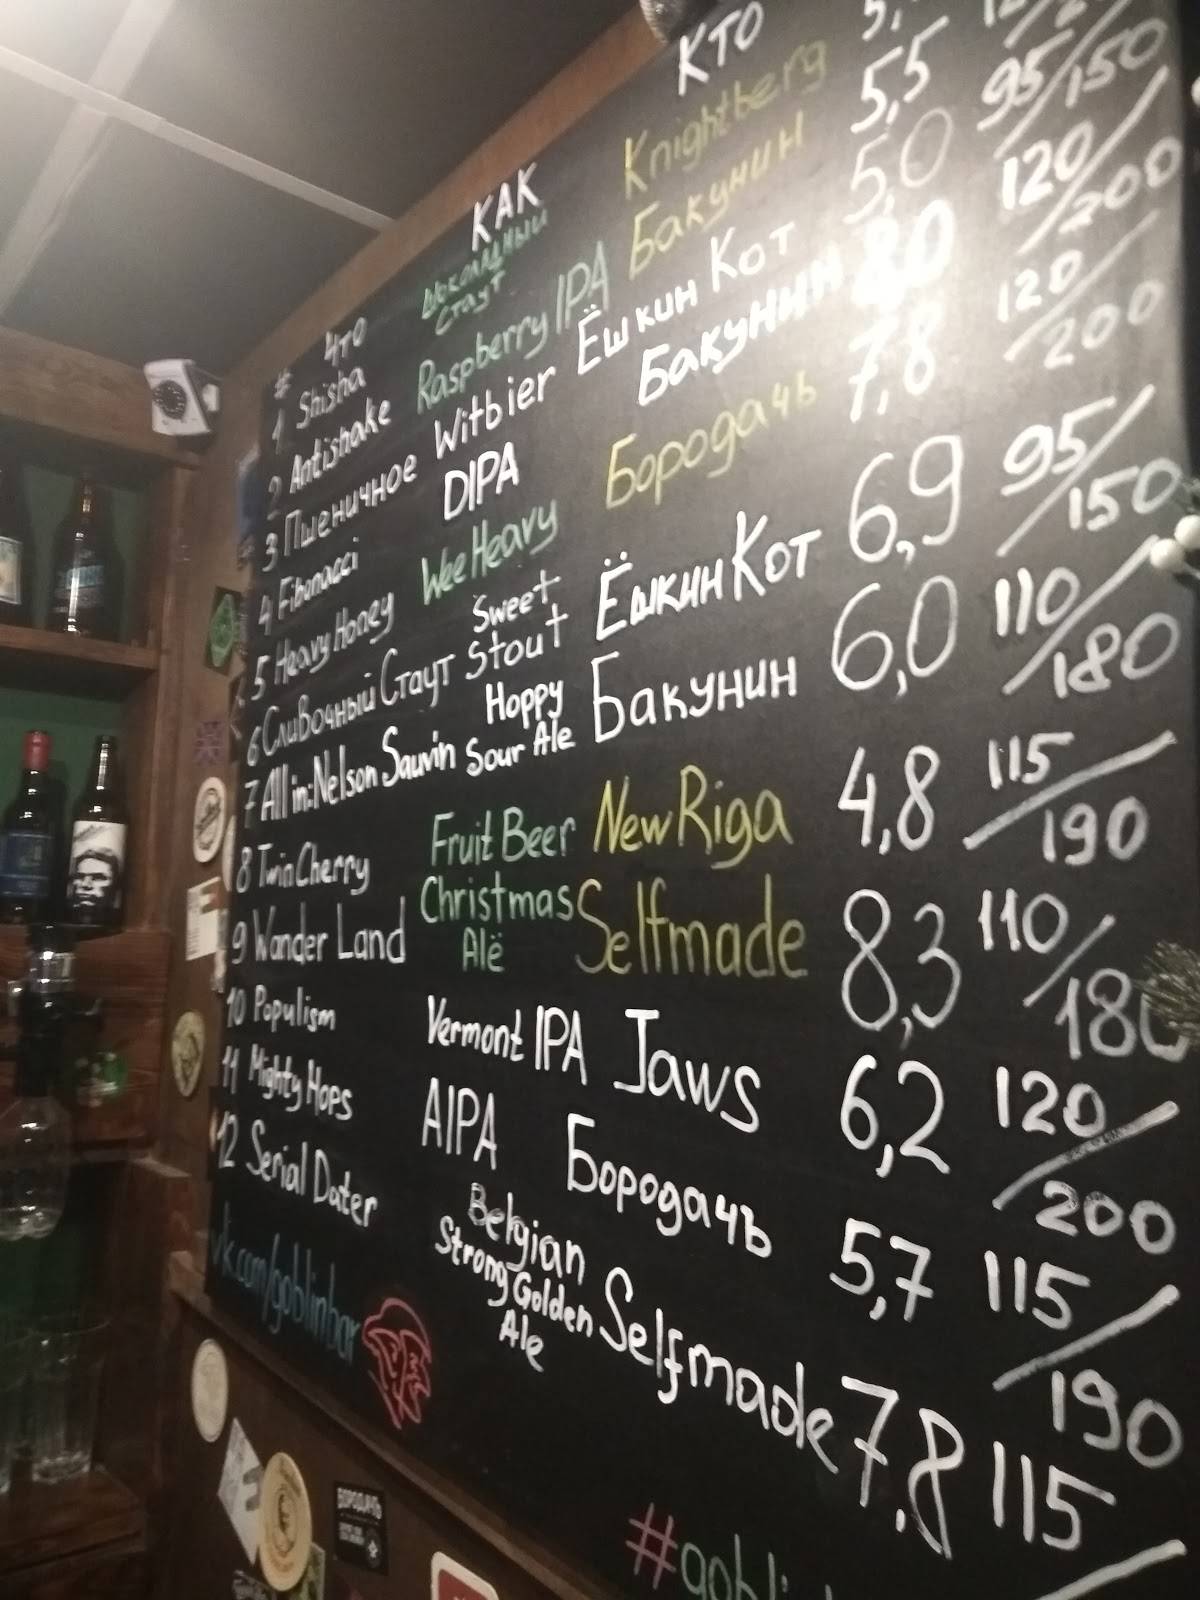 # ЧТО КАК КТО
1 Shisha Шоколадный Стаут Knightberg
2 Antishake Raspberry IPA Бакунин 5,5
3 Пшеничное Witbier Ёшкин Кот 5,0 95/150
4 Fibonacci DIPA Бакунин 8,0 120/200
5 Heavy Honey Wee Heavy Бородачъ 7,8 120/200
6 Сливочный Стаут Sweet Stout Ёшкин Кот 6,9 95/150
7 All in: Nelson Sauvin Hoppy Sour Ale Бакунин 6,0 110/180
8 Twin Cherry Fruit Beer New Riga 4,8 115/190
9 Wander Land Christmas Alë Selfmade 8,3 110/180
10 Populism Vermont IPA Jaws 6,2 120/200
11 Mighty Hops AIPA Бородачъ 5,7 115/190
12 Serial Dater Belgian Strong Golden Ale Selfmade 7,8 115/
vk.com/goblinbar
БОРОДАЧЪ